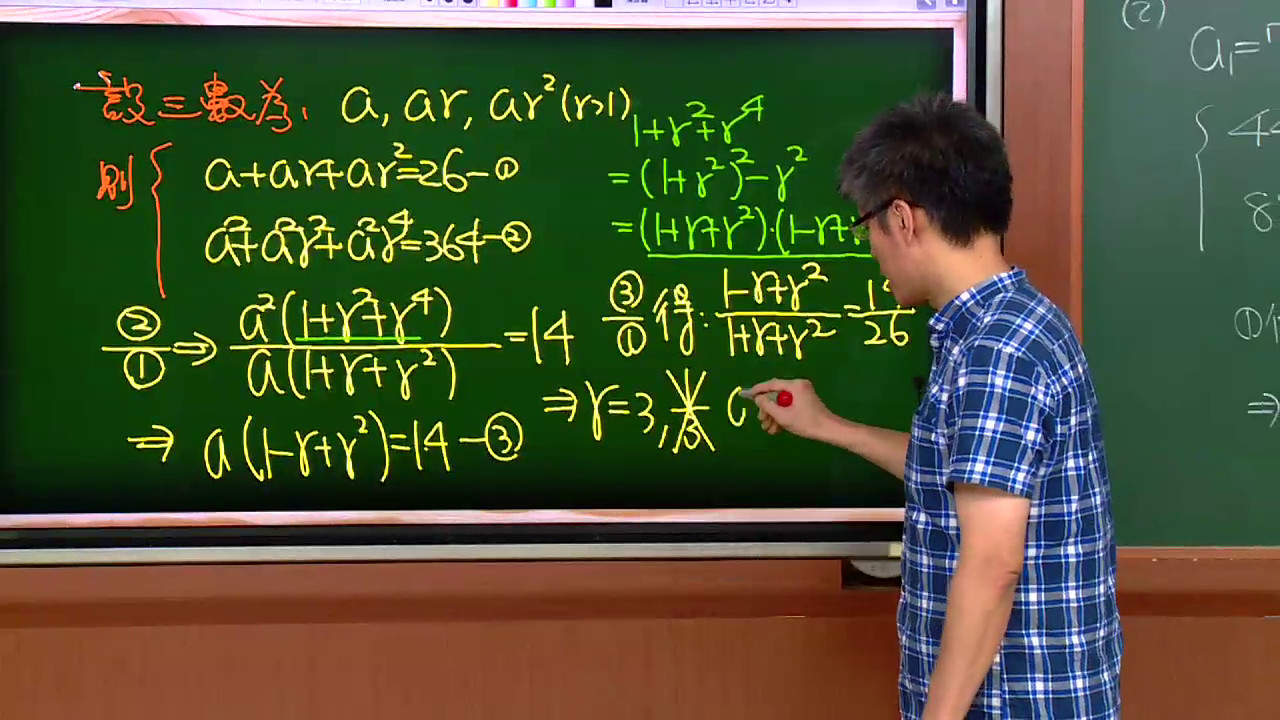 設三數為: a, ar, ar²(r>1)
則 { a+ar+ar²=26-①
a²+a²r²+a²r⁴=364-②
②/① ⇒ a²(1+r²+r⁴)/a(1+r+r²) =14
⇒ a(1-r+r²)=14-③
1+r²+r⁴
=(1+r²)²-r²
=(1+r+r²)·(1-r+
③/① 得: 1-r+r²/1+r+r² = 1/26
⇒r=3,
(2)
a₁=
{ 44
8
①
⇒